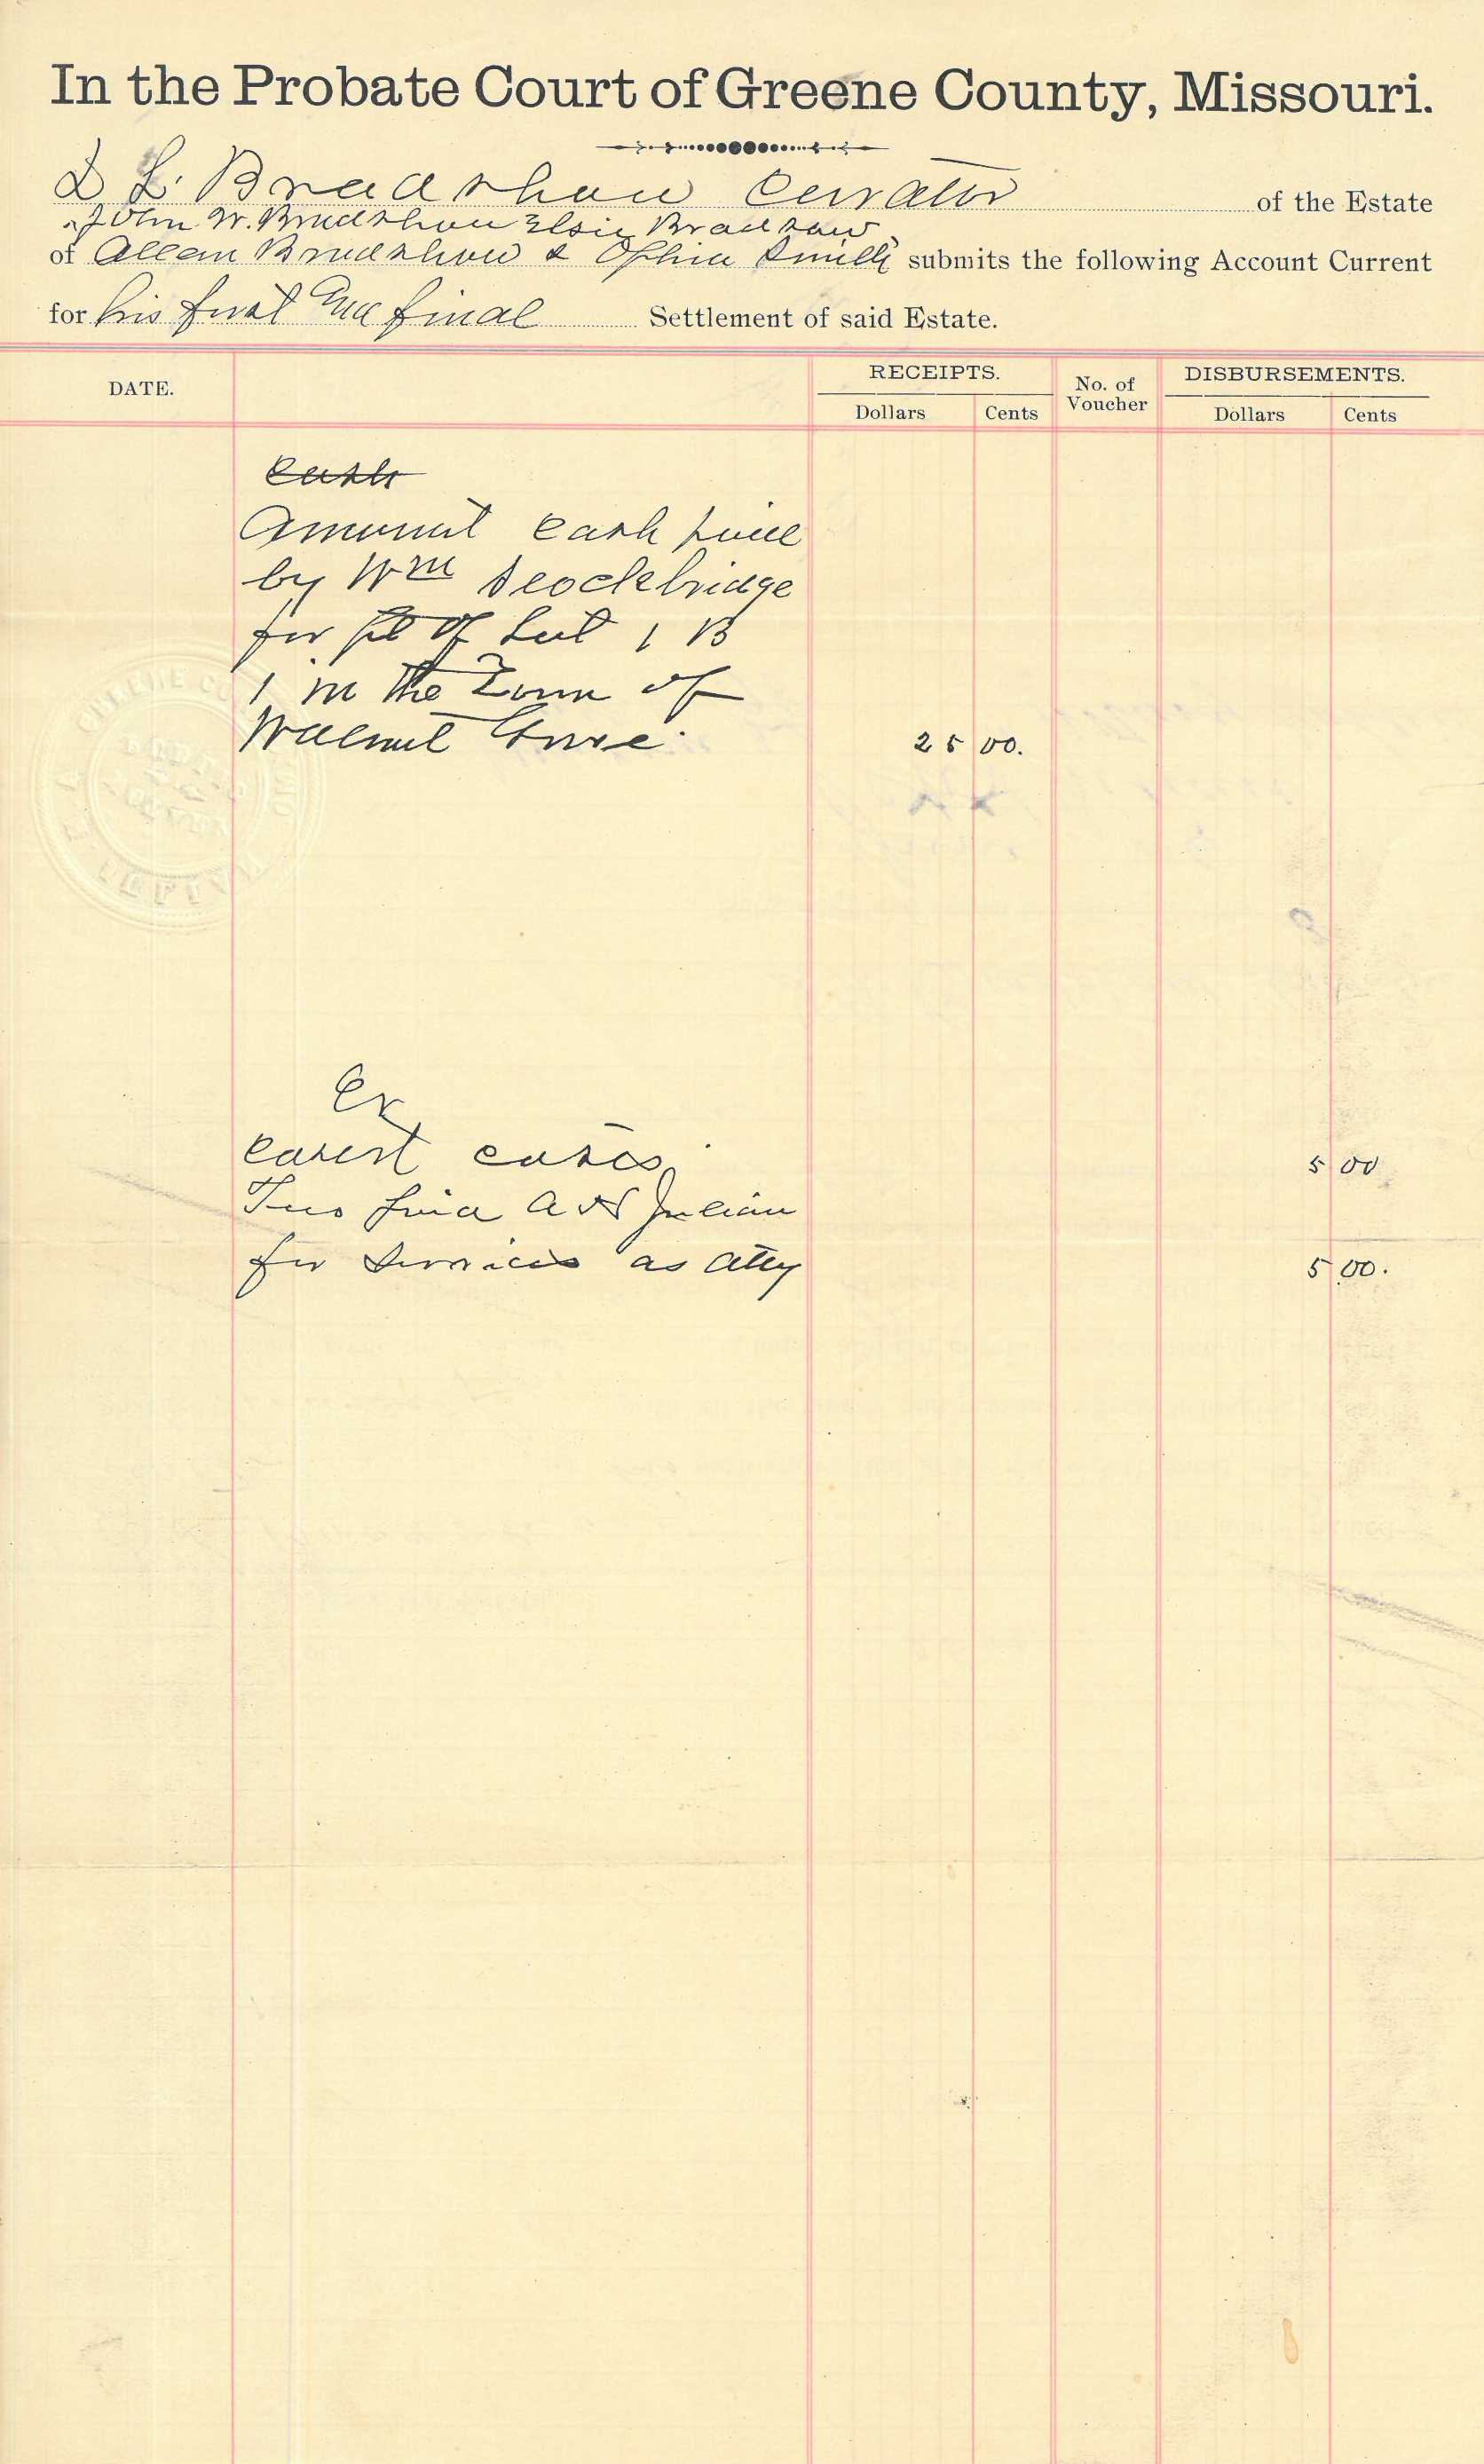 In the Probate Court of Greene County, Missouri.
D L. Bradshaw Currator of the Estate
John W. Bradshaw Elsie Bradsaw
of Allen Bradshaw & Ophia Smith submits the following Account Current
for his first and final Settlement of said Estate.
DATE. RECEIPTS. No. of Voucher DISBURSEMENTS.
Dollars Cents Dollars Cents
Cash
Amount Cash paid
by Wm Stockbridge
for pt of Lot 1 B
1 in the Town of
Walnut Grove. 25 00.
Cr
Court costs 5 00
paid A H Julian
for Services as atty 5 00.
GREENE CO